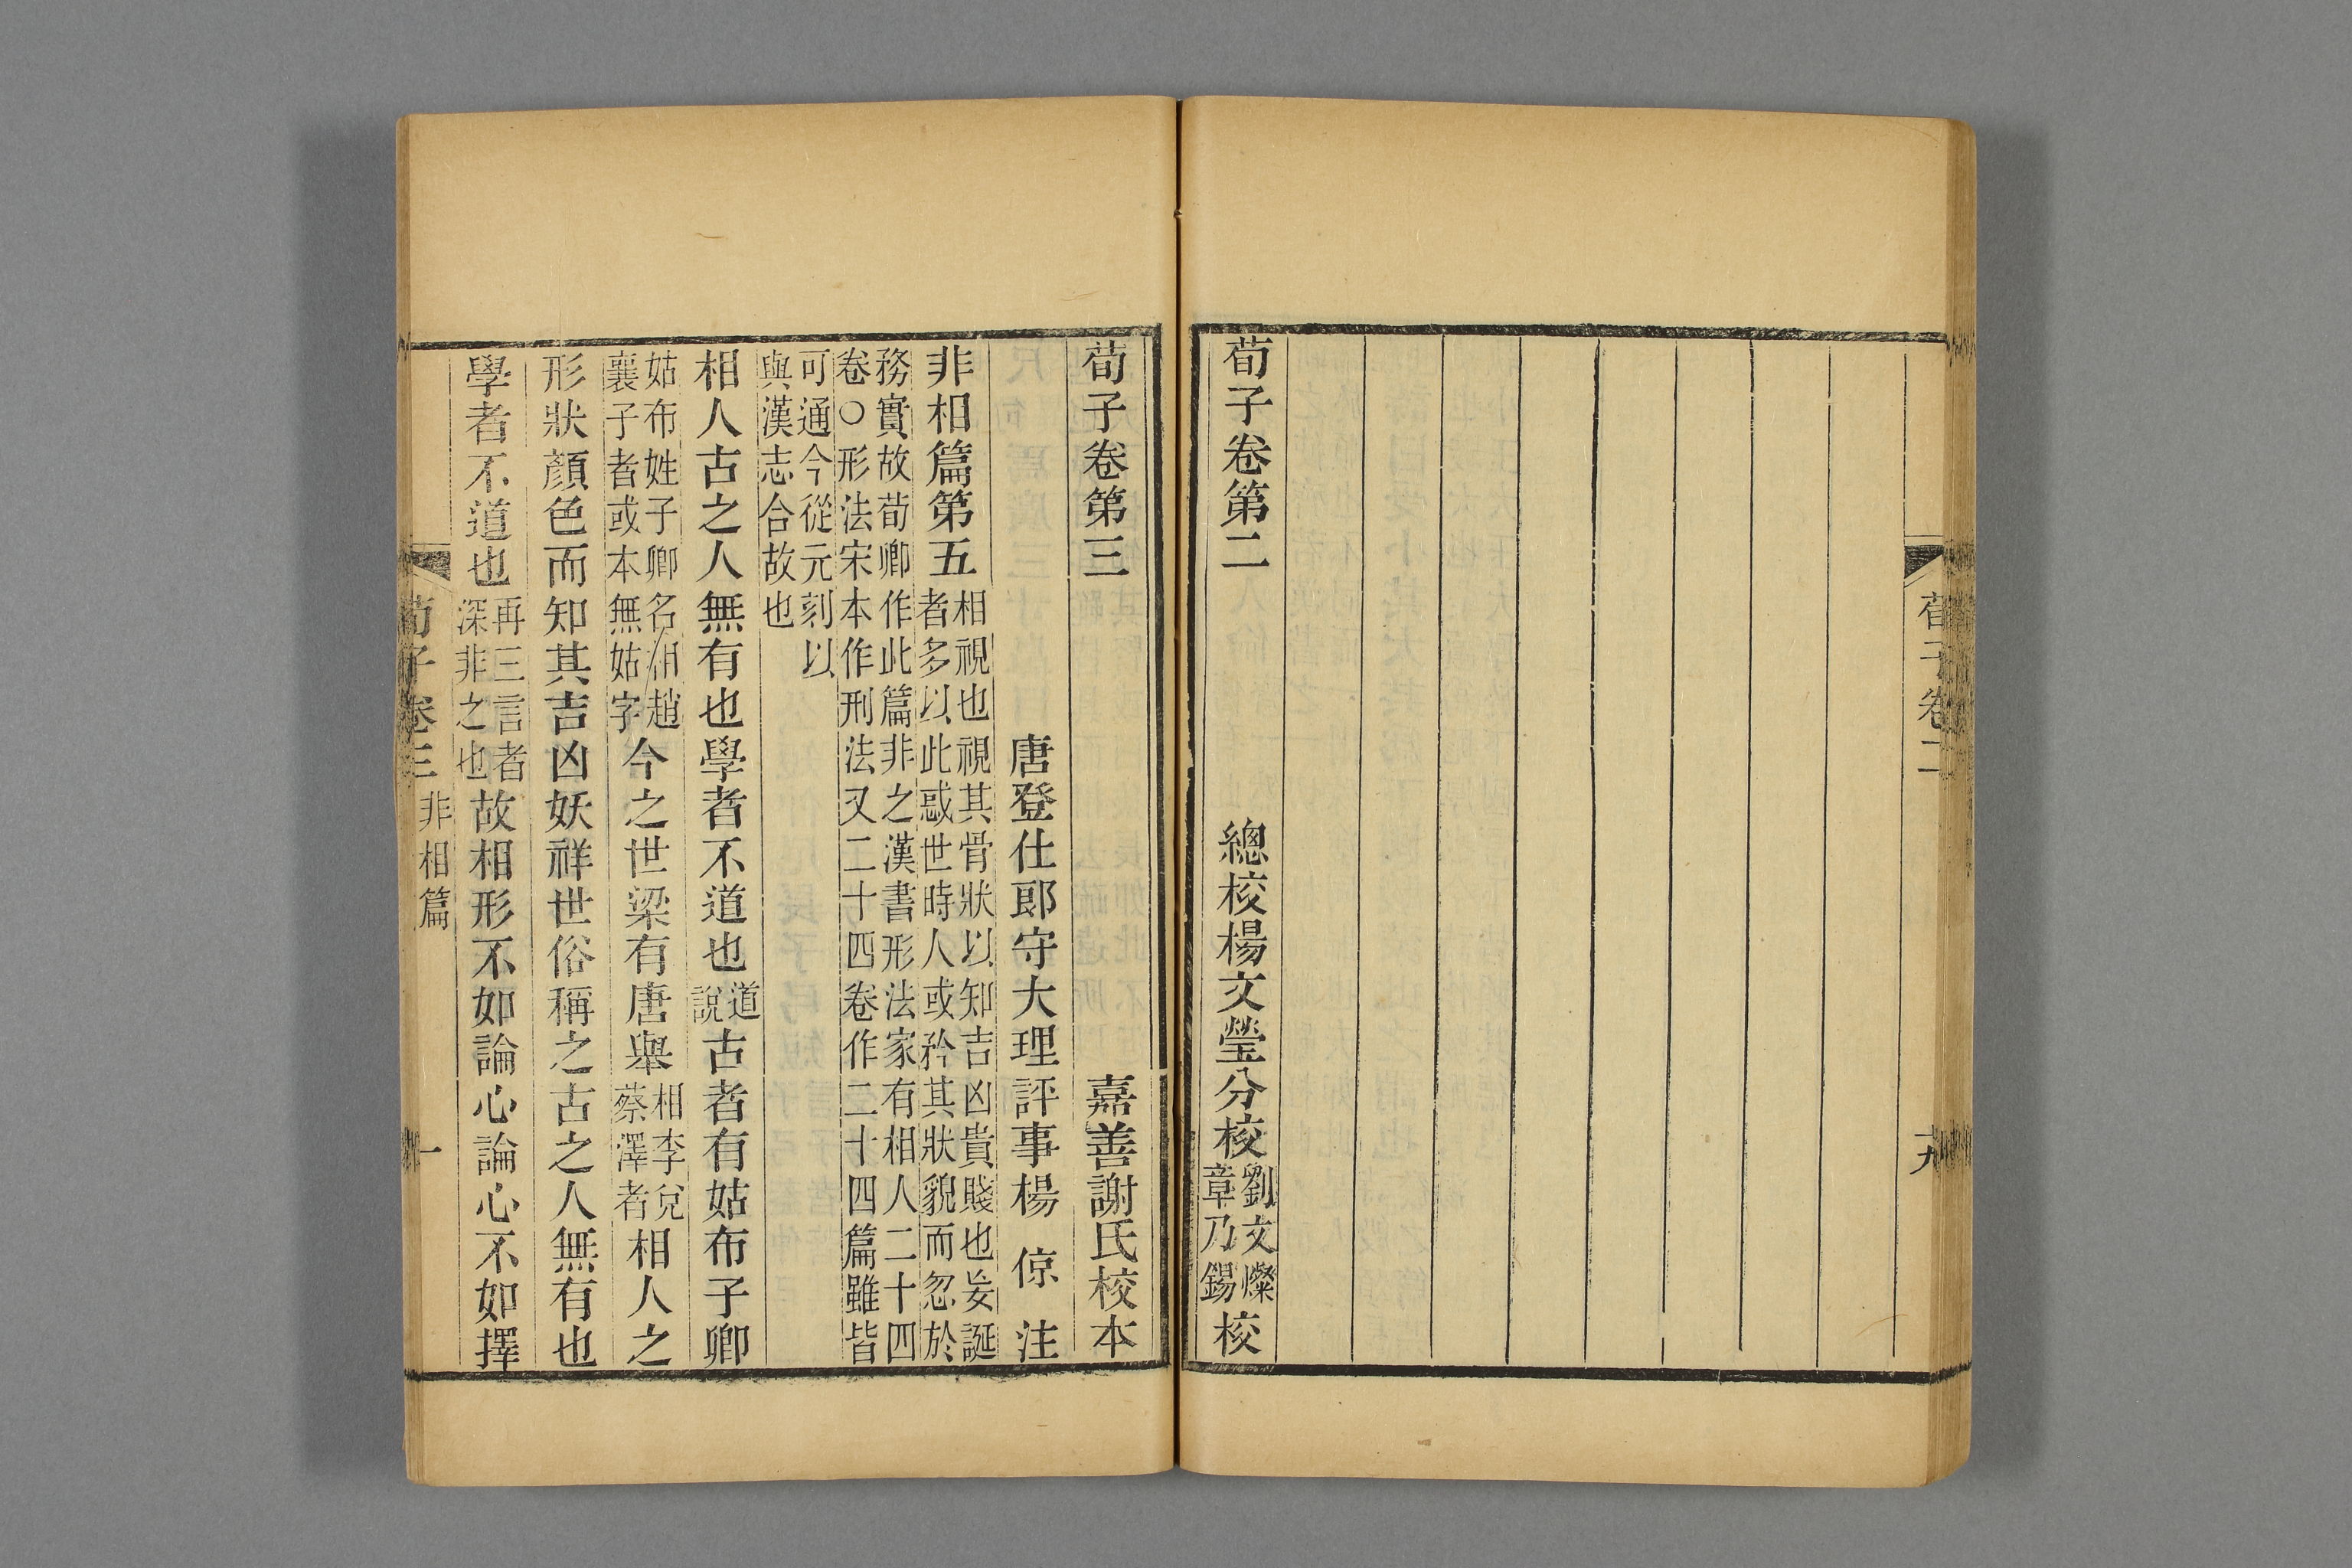 荀子卷二
十九
荀子卷第二　總校楊文瑩分校劉文燦章乃錫校
荀子卷第三　嘉善謝氏校本
唐登仕郎守大理評事楊　倞　注
非相篇第五相視也視其骨狀以知吉凶貴賤也妄誕
者多以此惑世時人或矜其狀貌而忽於
務實故荀卿作此篇非之漢書形法家有相人二十四
卷○形法宋本作刑法又二十四卷作二十四篇雖皆
可通今從元刻以
與漢志合故也
相人古之人無有也學者不道也道
說古者有姑布子卿
姑布姓子卿名相趙
襄子者或本無姑字今之世梁有唐舉相李兌
蔡澤者相人之
形狀顏色而知其吉凶妖祥世俗稱之古之人無有也
學者不道也再三言者
深非之也故相形不如論心論心不如擇
荀子卷三　非相篇
一